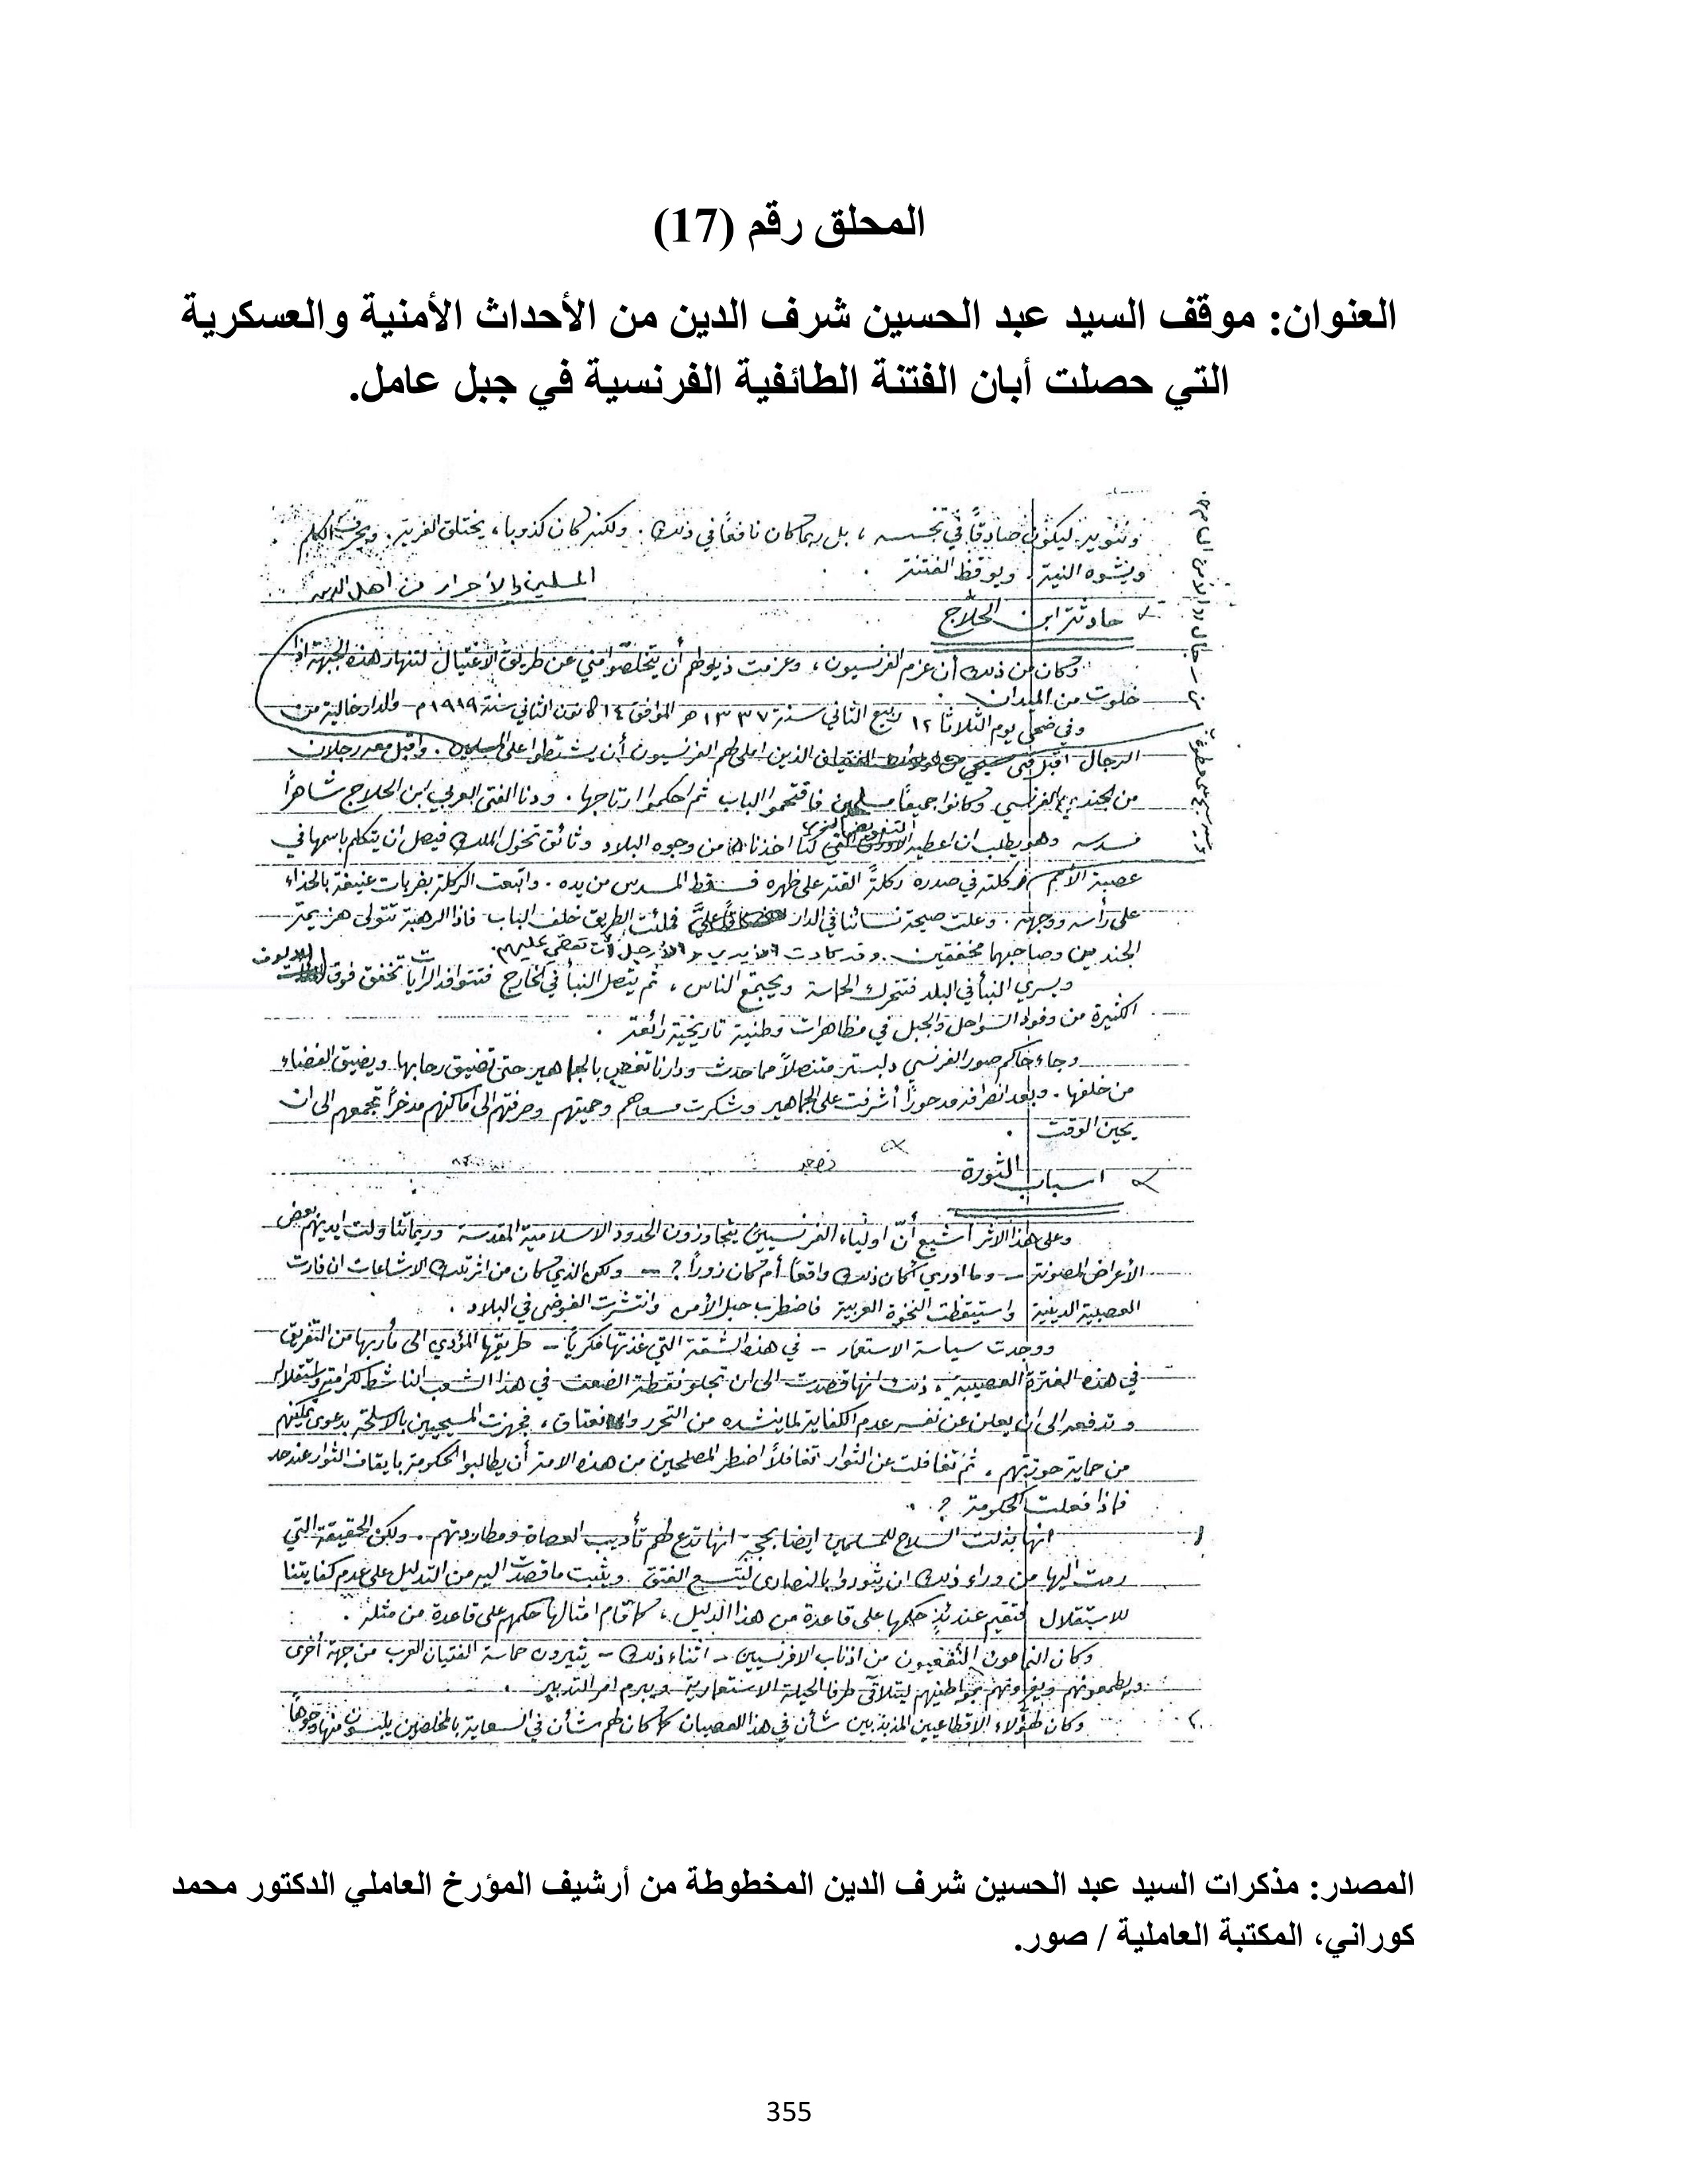 المحلق رقم (17)
العنوان: موقف السيد عبد الحسين شرف الدين من الأحداث الأمنية والعسكرية
التي حصلت أبان الفتنة الطائفية الفرنسية في جبل عامل.
ليكون صادقًا في تجسسه ، بل ربما كان نافعًا في ذلك . ولكنه كان كذوبا ، يختلق الفرية . ويحرف الكلم
ويشوه النية ، ويوقظ الفتنة .
حادثة ابن الحلاج
وكان من ذلك أن عزم الفرنسيون ، وعزمت ذيولهم أن يتخلصوا مني عن طريق الاغتيال لتنهار هذه الجبهة اذا
خلوت من الميدان .
وفي ضحى يوم الثلاثا ١٢ ربيع الثاني سنة ١٣٣٧ هـ الموافق ١٤ كانون الثاني سنة ١٩١٩ م - والدار خالية من
الرجال اقبل فتى الذين املى لهم الفرنسيون أن يشتطوا على المسلمين والأحرار من اهل . واقبل معه رجلان
من الجند الفرنسي وكانوا جميعًا مسلحين فاقتحموا الباب ثم احكموا ارتاجها . ودنا الفتى العربي ابن الحلاج شاهرًا
مسدسه وهو يطلب ان اعطيه كنا اخذناه من وجوه البلاد وثائق تخول الملك فيصل ان يتكلم باسمها في
عصبة الأمم فركلته في صدره ركلةً القته على ظهره فسقط المسدس من يده . واتبعت الركلة بضربات عنيفة بالحذاء
على رأسه ووجهه . وعلت صيحة نسائنا في الدار فملئت الطريق خلف الباب فاذا الرهبة تتولى هزيمة
الجنديين وصاحبهما مخفقين . وقد كادت الأيدي والأرجل أن تقضي عليهم .
ويسري النبأ في البلد فتتحرك الحماسة ويجتمع الناس ، ثم يتصل النبأ في الخارج فتتوافد الرايات تخفق فوق الالوف
الكثيرة من وفود السواحل والجبل في مظاهرات وطنية تاريخية رائعة .
وجاء حاكم صور الفرنسي متنصلاً مما حدث ودارنا تغص بالجماهير حتى تضيق رحابها ويضيق الفضاء
من خلفها . وبعد انصرافه مدحورًا أشرفت على الجماهير وشكرت مسعاهم وحميتهم وصرفتهم الى اماكنهم مدخرًا تجمعهم الى ان
يحين الوقت .
اسباب الثورة
وعلى هذا الاثر أشيع أنّ اولياء الفرنسيين يتجاوزون الحدود الاسلامية المقدسة وربما تناولت ايديهم بعض
الأعراض المصونة - وما ادري أكان ذلك واقعًا أم كان زورًا ؟ - ولكن الذي كان من اثر تلك الاشاعات ان فارت
العصبية الدينية واستيقظت النخوة العربية فاضطرب حبل الأمن وانتشرت الفوضى في البلاد .
ووجدت سياسة الاستعمار - في هذه الشقة التي غذتها فكريًا - طريقها المؤدي الى مأربها من التفريق
في هذه الفترة العصيبة ، ذلك انها قصدت الى ان تجلو نقطة الضعف في هذا الشعب الناشط لكرامته واستقلاله
وتدفعه الى ان يعلن عن نفسه عدم الكفاية لما ينشده من التحرر والانعتاق ، فجهزت المسيحيين بالاسلحة بدعوى تمكينهم
من حماية حوزتهم ، ثم تغافلت عن الثوار تغافلاً اضطر المصلحين من هذه الامة أن يطالبوا الحكومة بايقاف الثوار عند حد
فماذا فعلت الحكومة ؟ .
انها بذلت السلاح للمسلمين ايضا بحجة انها تدع لهم تأديب العصاة ومطاردتهم . ولكن الحقيقة التي
رمت اليها من وراء ذلك ان يثوروا بالنصارى ليتسع الفتق ويثبت ما قصدت اليه من التدليل على عدم كفايتنا
للاستقلال فتقيم عندئذٍ حكمها على قاعدة من هذا الدليل ، كما اقام امثالها حكمهم على قاعدة من مثله .
وكان النمامون النفعيون من اذناب الافرنسيين - اثناء ذلك - يثيرون حماسة الفتيان العرب من جهة أخرى
ويطمعونهم ويغرونهم بمواطنيهم ليتلاقى طرفا الحيلة الاستعمارية ويبرم امر التدبير .
وكان لهؤلاء الاقطاعيين المذبذبين شأن في هذا العصيان كما كان لهم شأن في السعاية بالمخلصين يلبسون منها وجوهاً
المصدر: مذكرات السيد عبد الحسين شرف الدين المخطوطة من أرشيف المؤرخ العاملي الدكتور محمد
كوراني، المكتبة العاملية / صور.
355